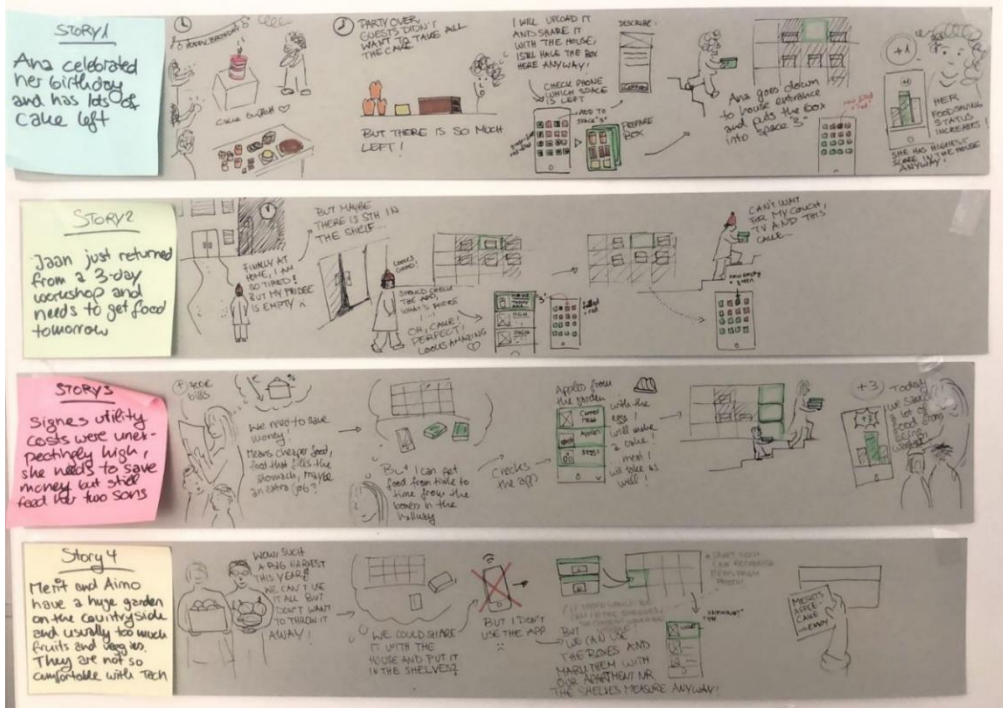 STORY 1
Ana celebrated
her birthday
and has lots of
cake left
HAPPY BIRTHDAY
CAKE BUFFET
PARTY OVER,
GUESTS DIDN'T
WANT TO TAKE ALL
THE CAKE
BUT THERE IS SO MUCH
LEFT!
I WILL UPLOAD IT
AND SHARE IT
WITH THE HOUSE,
STILL HAVE THE BOX
HERE ANYWAY!
CHECK PHONE
WHICH SPACE
IS LEFT
ADD TO
SPACE "3"
DESCRIBE
PREPARE
BOX
Ana goes down
to house entrance
and puts the box
into space "3"
new food
= red
+1
HER
FOODSHARING
STATUS
INCREASES!
SHE HAS HIGHEST
SCORE IN THE HOUSE
ANYWAY!
STORY 2
Jaan just returned
from a 3-day
workshop and
needs to get food
tomorrow
FINALLY AT
HOME, I AM
SO TIRED!
BUT MY FRIDGE
IS EMPTY
BUT MAYBE
THERE IS STH IN
THE SHELF...
LOOKS
GOOD!
SHOULD CHECK
THE APP,
WHAT'S INSIDE
OH, CAKE!
PERFECT!
LOOKS AMAZING
"3"
CAN'T WAIT
FOR MY COUCH,
TV AND THIS
CAKE...
now empty
= green
STORY 3
Signes utility
costs were unex-
pectingly high,
she needs to save
money but still
feed her two sons
BILLS
We need to save
money.
Means cheaper food,
food that fills the
stomach, maybe
an extra job?
But I can get
food from time to
time from the
boxes in the
hallway
Checks
the app
Apples from
the garden
Apples
EGGS
with the
egg I
will make
a cake!
meat I
will take as
well!
+3
Today
we saved
a lot of
food from
being
wasted!
Story 4
Merit and Aimo
have a huge garden
on the countryside
and usually too much
fruits and veggies.
They are not so
comfortable with Tech
WOW, SUCH
A BIG HARVEST
THIS YEAR!
WE CAN'T USE
IT ALL BUT
DON'T WANT
TO THROW IT
AWAY!
WE COULD SHARE
IT WITH THE
HOUSE AND PUT IT
IN THE SHELVES?
BUT I DON'T
USE THE APP
BUT
WE CAN USE
THE BOXES AND
MARK THEM WITH
OUR APARTMENT NR
THE SHELVES MEASURE ANYWAY!
MERIT'S
APPLE-
CAKE